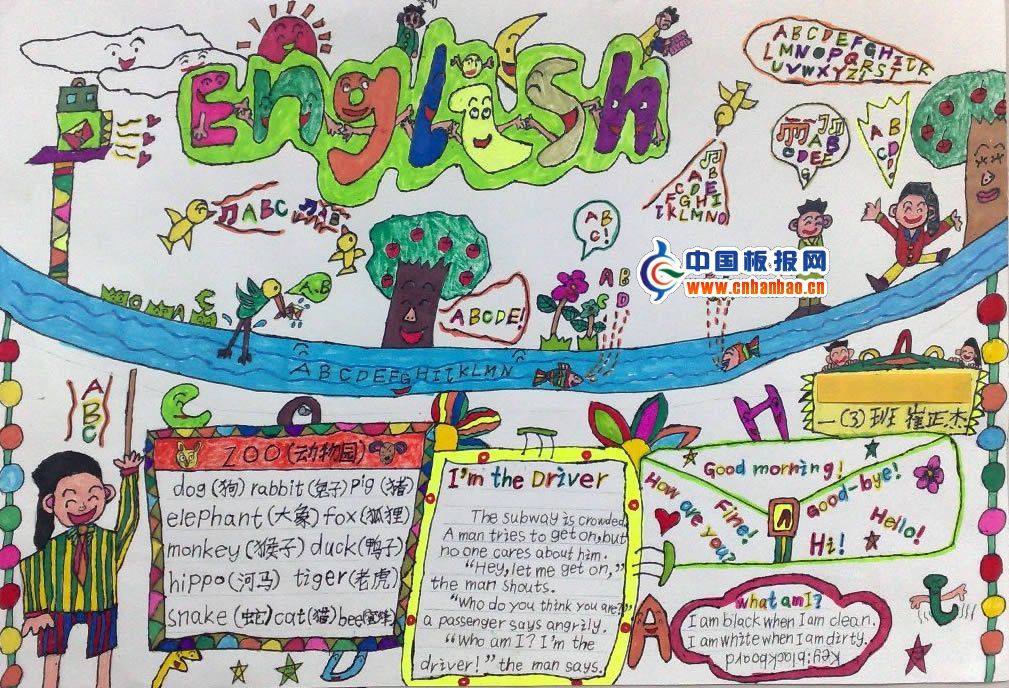 English
ABCDEFGHIJK
LMNOPQRST
UVWXYZ
ABC
AB
CDEF
G
AB
C
D!
AB
CDE
FGHI
JKLMNO
AB
C!
中国板报网
www.cnbanbao.cn
AB
ABCDE!
ABCDEFGHIJKLMN
一(3)班 崔正杰
A
B
C
ZOO(动物园)
dog(狗) rabbit(兔子) pig(猪)
elephant(大象) fox(狐狸)
monkey(猴子) duck(鸭子)
hippo(河马) tiger(老虎)
snake(蛇) cat(猫) bee(蜜蜂)
I'm the Driver
The subway is crowded,
A man tries to get on, but
no one cares about him.
"Hey, let me get on,"
the man shouts.
"Who do you think you are?"
a passenger says angrily.
"Who am I? I'm the
driver!" the man says.
H
Good morning!
How are you?
Fine!
Good-bye!
Hello!
Hi!
A
what am I?
I am black when I am clean.
I am white when I am dirty.
Key: blackboard